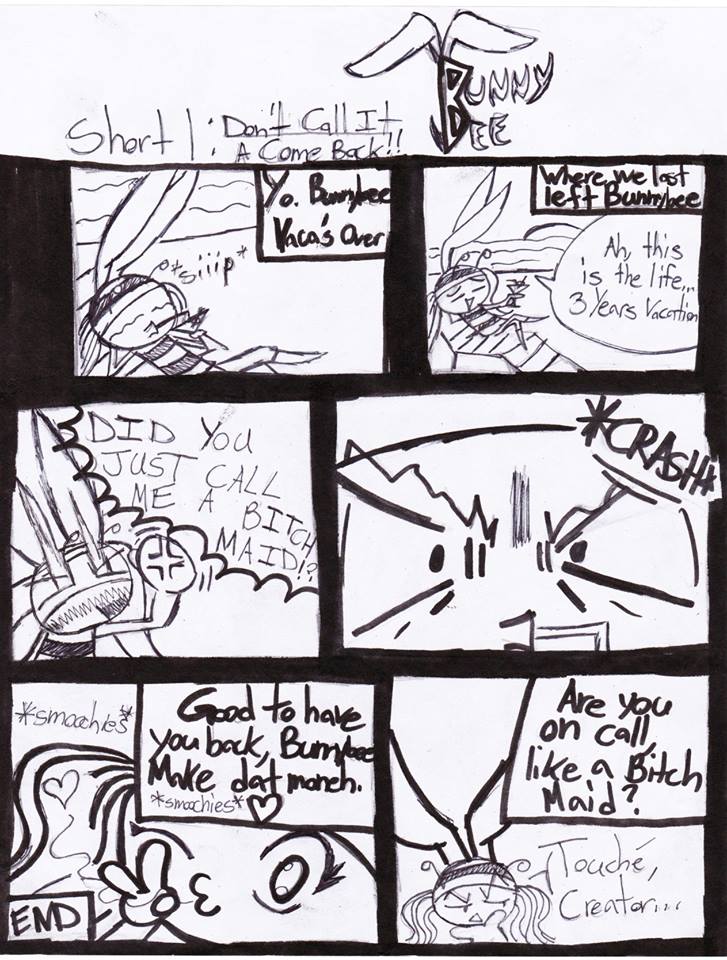 BUNNY
BEE
Short 1: Don't Call It
A Come Back!!
Where we last
left Bunnybee
Ah, this
is the life...
3 Years Vacation
Yo. Bunnybee
Vaca's Over
*siiip*
*CRASHH
DID YOU
JUST CALL
ME A BITCH
MAID!?
Are you
on call,
like a Bitch
Maid?
Touché,
Creator...
Good to have
you back, Bunnybee
Make dat moneh.
*smoochies*
*smoochies*
END